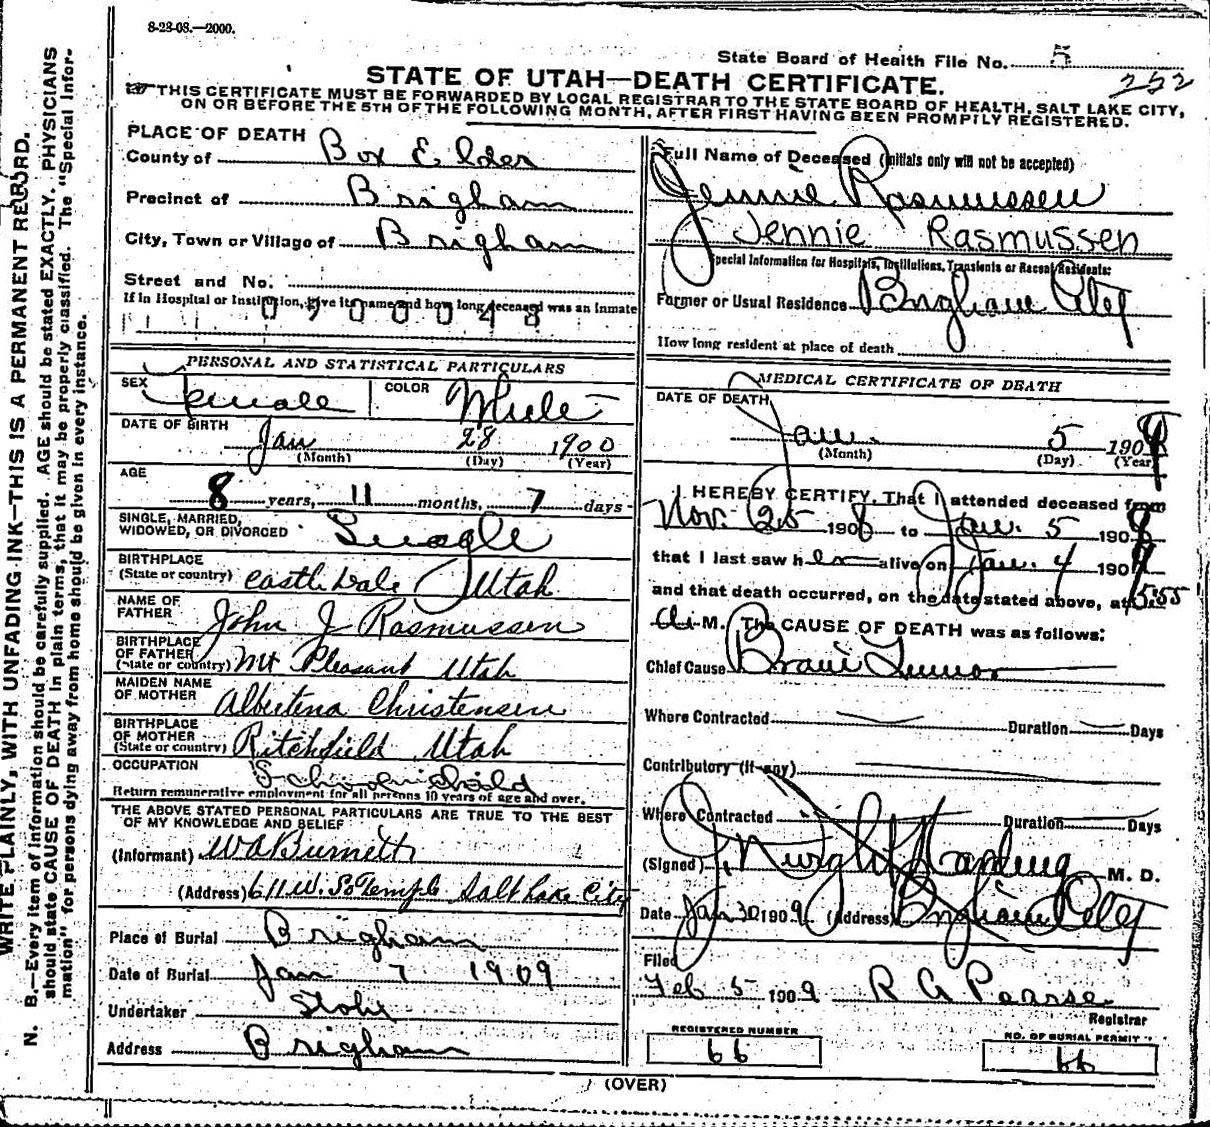 8-28-08.—2000.
State Board of Health File No. 5
252
STATE OF UTAH—DEATH CERTIFICATE.
THIS CERTIFICATE MUST BE FORWARDED BY LOCAL REGISTRAR TO THE STATE BOARD OF HEALTH, SALT LAKE CITY,
ON OR BEFORE THE 5TH OF THE FOLLOWING MONTH, AFTER FIRST HAVING BEEN PROMPTLY REGISTERED.
WRITE PLAINLY, WITH UNFADING INK—THIS IS A PERMANENT RECORD.
N. B.—Every item of information should be carefully supplied. AGE should be stated EXACTLY. PHYSICIANS
should state CAUSE OF DEATH in plain terms, that it may be properly classified. The "Special Infor-
mation" for persons dying away from home should be given in every instance.
PLACE OF DEATH
County of Box Elder
Precinct of Brigham
City, Town or Village of Brigham
Street and No.
If in Hospital or Institution, give its name and how long deceased was an inmate
0900048
PERSONAL AND STATISTICAL PARTICULARS
SEX Female COLOR White
DATE OF BIRTH
Jan 28 1900
(Month) (Day) (Year)
AGE
8 years, 11 months, 7 days
SINGLE, MARRIED,
WIDOWED, OR DIVORCED Single
BIRTHPLACE
(State or country) Castle Dale Utah
NAME OF
FATHER John J Rasmussen
BIRTHPLACE
OF FATHER
(State or country) Mt Pleasant Utah
MAIDEN NAME
OF MOTHER Albertena Christensen
BIRTHPLACE
OF MOTHER
(State or country) Ritchfield Utah
OCCUPATION
School child
Return remunerative employment for all persons 10 years of age and over.
THE ABOVE STATED PERSONAL PARTICULARS ARE TRUE TO THE BEST
OF MY KNOWLEDGE AND BELIEF
(Informant) W A Burnett
(Address) 611 W. So Temple Salt Lake City
Place of Burial Brigham
Date of Burial Jan 7 1909
Undertaker Stohl
Address Brigham
Full Name of Deceased (Initials only will not be accepted)
Jennie Rasmussen
Jennie Rasmussen
Special Information for Hospitals, Institutions, Transients or Recent Residents:
Former or Usual Residence Brigham City
How long resident at place of death
MEDICAL CERTIFICATE OF DEATH
DATE OF DEATH
Jan. 5 1909
(Month) (Day) (Year)
I HEREBY CERTIFY, That I attended deceased from
Nov. 25 1908 to Jan. 5 1909
that I last saw her alive on Jan. 4 1909
and that death occurred, on the date stated above, at 5:55
a. M. The CAUSE OF DEATH was as follows:
Chief Cause Brain Tumor
Where Contracted Duration Days
Contributory (if any)
Where Contracted Duration Days
(Signed) Harding M. D.
Date Jan 30 1909 (Address) Brigham City
Filed
Feb 5 1909 R G Pearse
Registrar
REGISTERED NUMBER
66
NO. OF BURIAL PERMIT
66
(OVER)